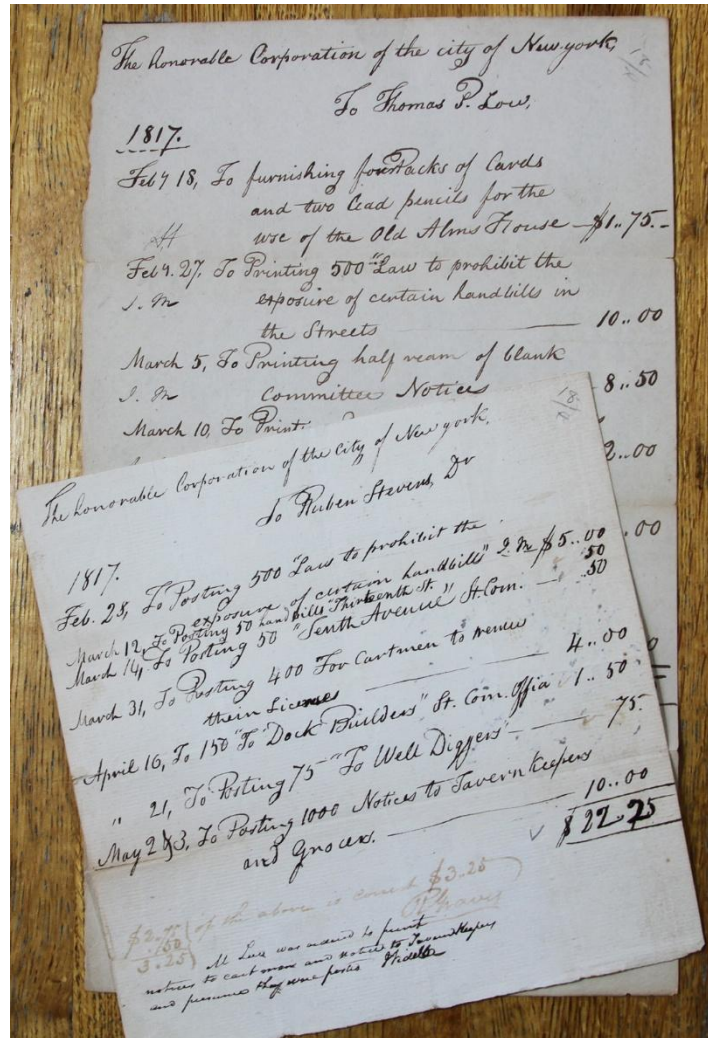 The honorable Corporation of the city of New york,
To Thomas P. Low,
1817.
Feby 18, To furnishing four Packs of Cards
and two lead pencils for the
use of the Old Alms House — $1..75.–
Feby. 27. To Printing 500 "Law to prohibit the
J. M exposure of certain handbills in
the Streets — 10..00
March 5, To Printing half ream of blank
J. M Committee Notices 8..50
March 10, To Print
2..00
.00
The honorable Corporation of the City of New york,
To Ruben Stevens, Dr
1817.
Feb. 28, To Posting 500 "Law to prohibit the
exposure of certain handbills" J. M $5..00
March 12, To Posting 50 handbills "Thirteenth St. 50
March 14, To Posting 50 "Tenth Avenue" St. Com. — .50
March 31, To Posting 400 For Cartmen to renew
their Licenses — 4..00
April 16, To 150 "To Dock Builders" St. Com. Offia 1..50
" 21, To Posting 75 "To Well Diggers" — 75
May 2 & 3, To Posting 1000 Notices to Tavern Keepers
and Grocers. — 10..00
$22.75
of the above is correct $3.25
$2.75
.50
3.25
Mr Low was ordered to print
notices to cartmen and notice to Tavern Keepers
and presume they were posted